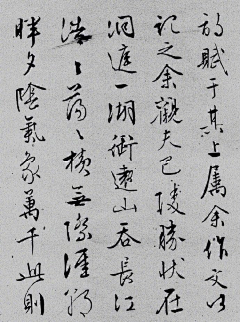 詩賦于其上屬余作文以
記之余觀夫巴陵勝狀在
洞庭一湖銜遠山吞長江
浩〻蕩〻橫無際涯朝
暉夕陰氣象萬千此則